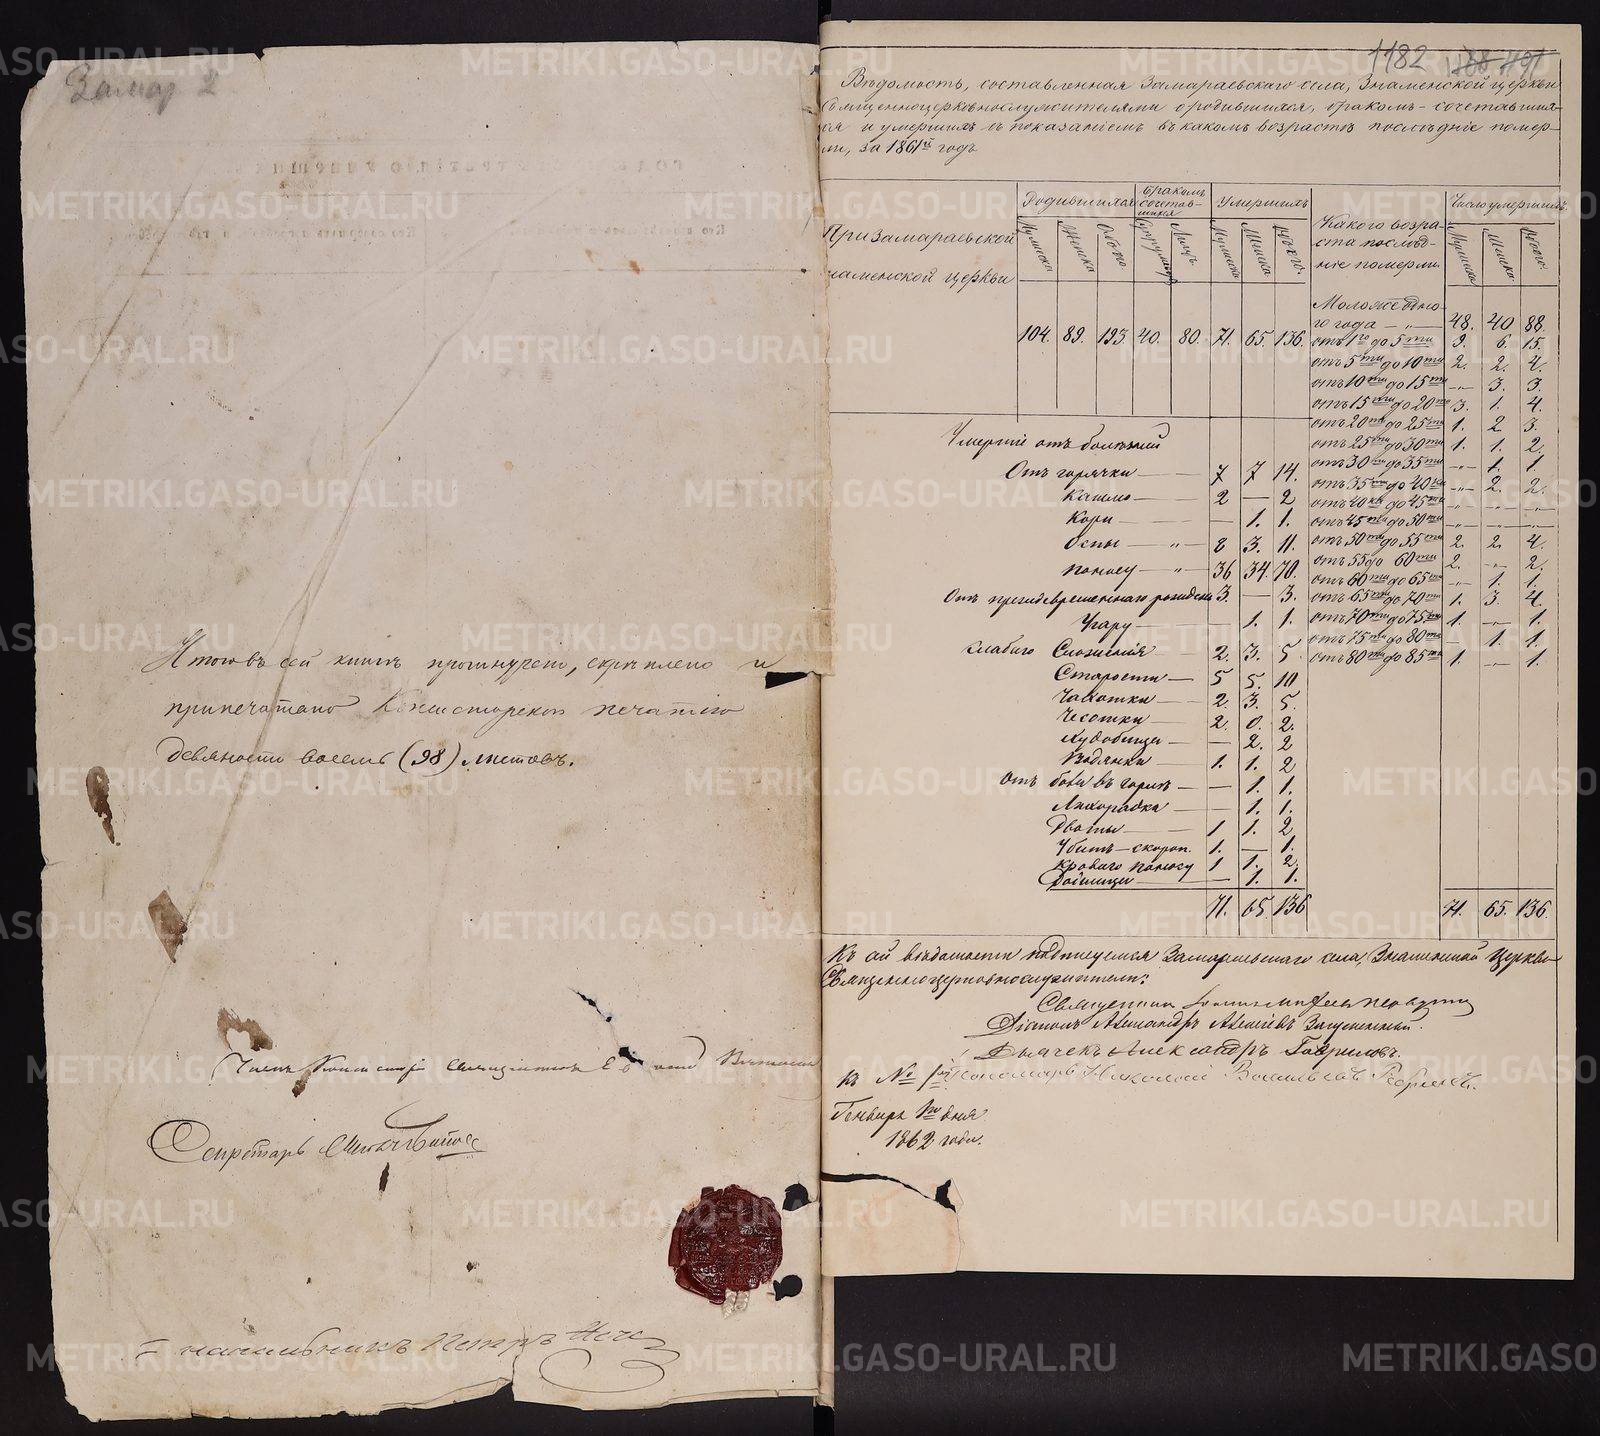 Замар 2
Итого въ сей книгѣ прошнуровано, скрѣплено и
припечатано Консисторскою печатью
девяносто восемь (98) листовъ.
Членъ Консисторіи Священникъ
Секретарь
Столоначальникъ Петръ
1182
Вѣдомость, составленная Замараевскаго села, Знаменской церкви
Священноцерковнослужителями о родившихся, бракомъ-сочетавших-
ся и умершихъ съ показаніемъ въ какомъ возрастѣ послѣдніе помер-
ли, за 1861й годъ
При Замараевской
Знаменской церкви
Родившихся
Мужеска Женска Обоего
Бракомъ сочетав-шихся
Супружествъ Лицъ
Умершихъ
Мужеска Женска Обоего
Какого возра-
ста послѣд-
ніе померли.
Число умершихъ.
Мужеска Женска Обоего
104. 89. 193. 40. 80. 71. 65. 136.
Моложе одно-
го года — „ — 48. 40 88.
отъ 1го до 5ти 9. 6. 15.
отъ 5ти до 10ти 2. 2. 4.
отъ 10ти до 15ти -„- 3. 3.
отъ 15ти до 20ти 3. 1. 4.
отъ 20ти до 25ти 1. 2 3.
отъ 25ти до 30ти 1. 1. 2.
отъ 30ти до 35ти -„- 1. 1.
отъ 35ти до 40ка -„- 2. 2.
отъ 40ка до 45ти -„- -„- -„-
отъ 45ти до 50ти -„- -„- -„-
отъ 50ти до 55ти 2. 2. 4.
отъ 55 до 60ти 2. -„- 2.
отъ 60ти до 65ти -„- 1. 1.
отъ 65ти до 70ти 1. 3. 4.
отъ 70ти до 75ти 1. -„- 1.
отъ 75ти до 80ти — 1. 1.
отъ 80ти до 85ти 1. -„- 1.
71. 65. 136.
Умершіе отъ болѣзней
Отъ горячки — 7 7 14.
Кашлю — 2 — 2
Кори — — 1. 1.
Оспы — „ — 8 3. 11.
Поносу — „ — 36 34. 70.
Отъ преждевременнаго рожденія 3. — 3.
Угару — 1. 1.
Слабаго Сложенія 2. 3. 5
Старости — 5 5. 10
Чахотки — 2. 3. 5.
Чесотки — 2. 0. 2.
Худобища — — 2. 2
Водянки — 1. 1. 2
Отъ боли въ горлѣ — — 1. 1.
Лихорадки — 1. 1.
1 1. 2
Убитъ — скороп. 1. — 1.
Кроваго поносу 1 1. 2.
— 1. 1.
71. 65 136
Къ сей вѣдомости подписуемся Замараевскаго села, Знаменской Церкви
Священноцерковнослужители:
Священникъ
Діаконъ Александръ
Дьячекъ Александръ Гавриловъ.
Пономарь Николай Васильевъ
къ №
Генваря дня
1862 года.